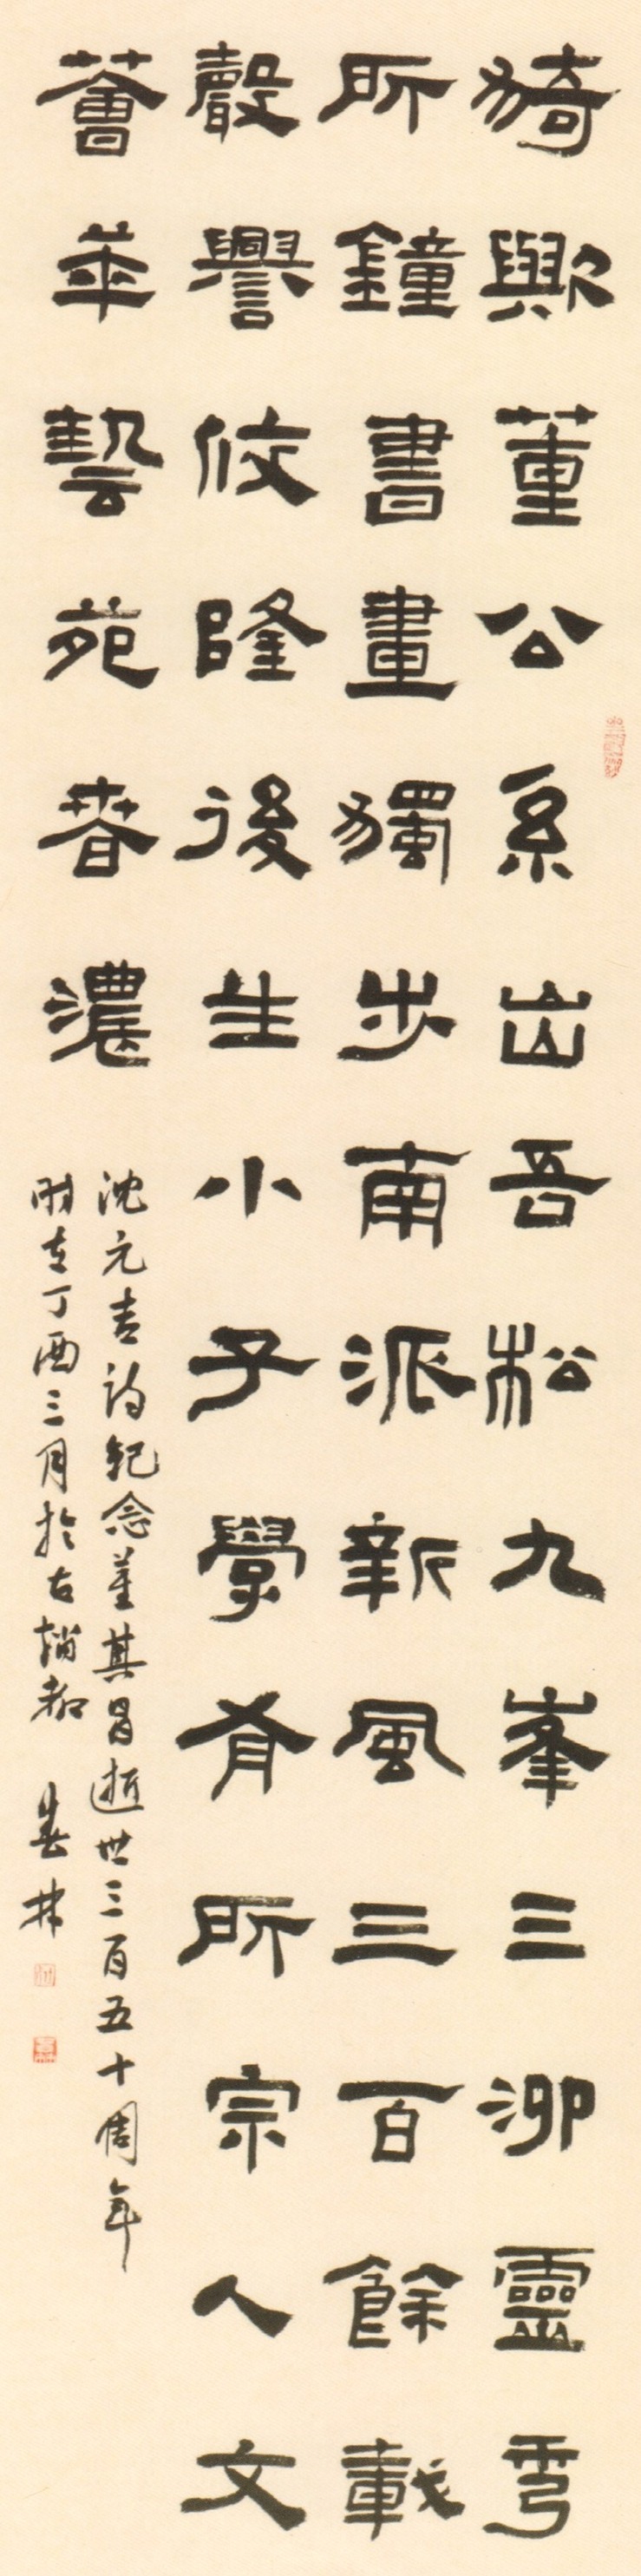 猗歟董公系出吾松九峯三泖靈粤
所鐘書畫獨步南派新風三百餘載
聲譽攸隆後生小子學有所宗人文
薈萃藝苑春濃
沈元吉詩紀念董其昌逝世三百五十周年
時在丁酉三月於古趙都 春林